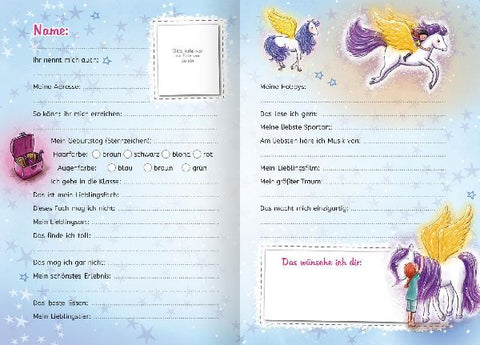 Name:
Ihr nennt mich auch:
Meine Adresse:
So könnt ihr mich erreichen:
Mein Geburtstag (Sternzeichen):
Haarfarbe: braun schwarz blond rot
Augenfarbe: blau braun grün
Ich gehe in die Klasse:
Das ist mein Lieblingsfach:
Dieses Fach mag ich nicht:
Mein Lieblingsort:
Das finde ich toll:
Das mag ich gar nicht:
Mein schönstes Erlebnis:
Das beste Essen:
Mein Lieblingstier:
Meine Hobbys:
Das lese ich gern:
Meine liebste Sportart:
Am liebsten höre ich Musik von:
Mein Lieblingsfilm:
Mein größter Traum:
Das macht mich einzigartig:
Das wünsche ich dir: